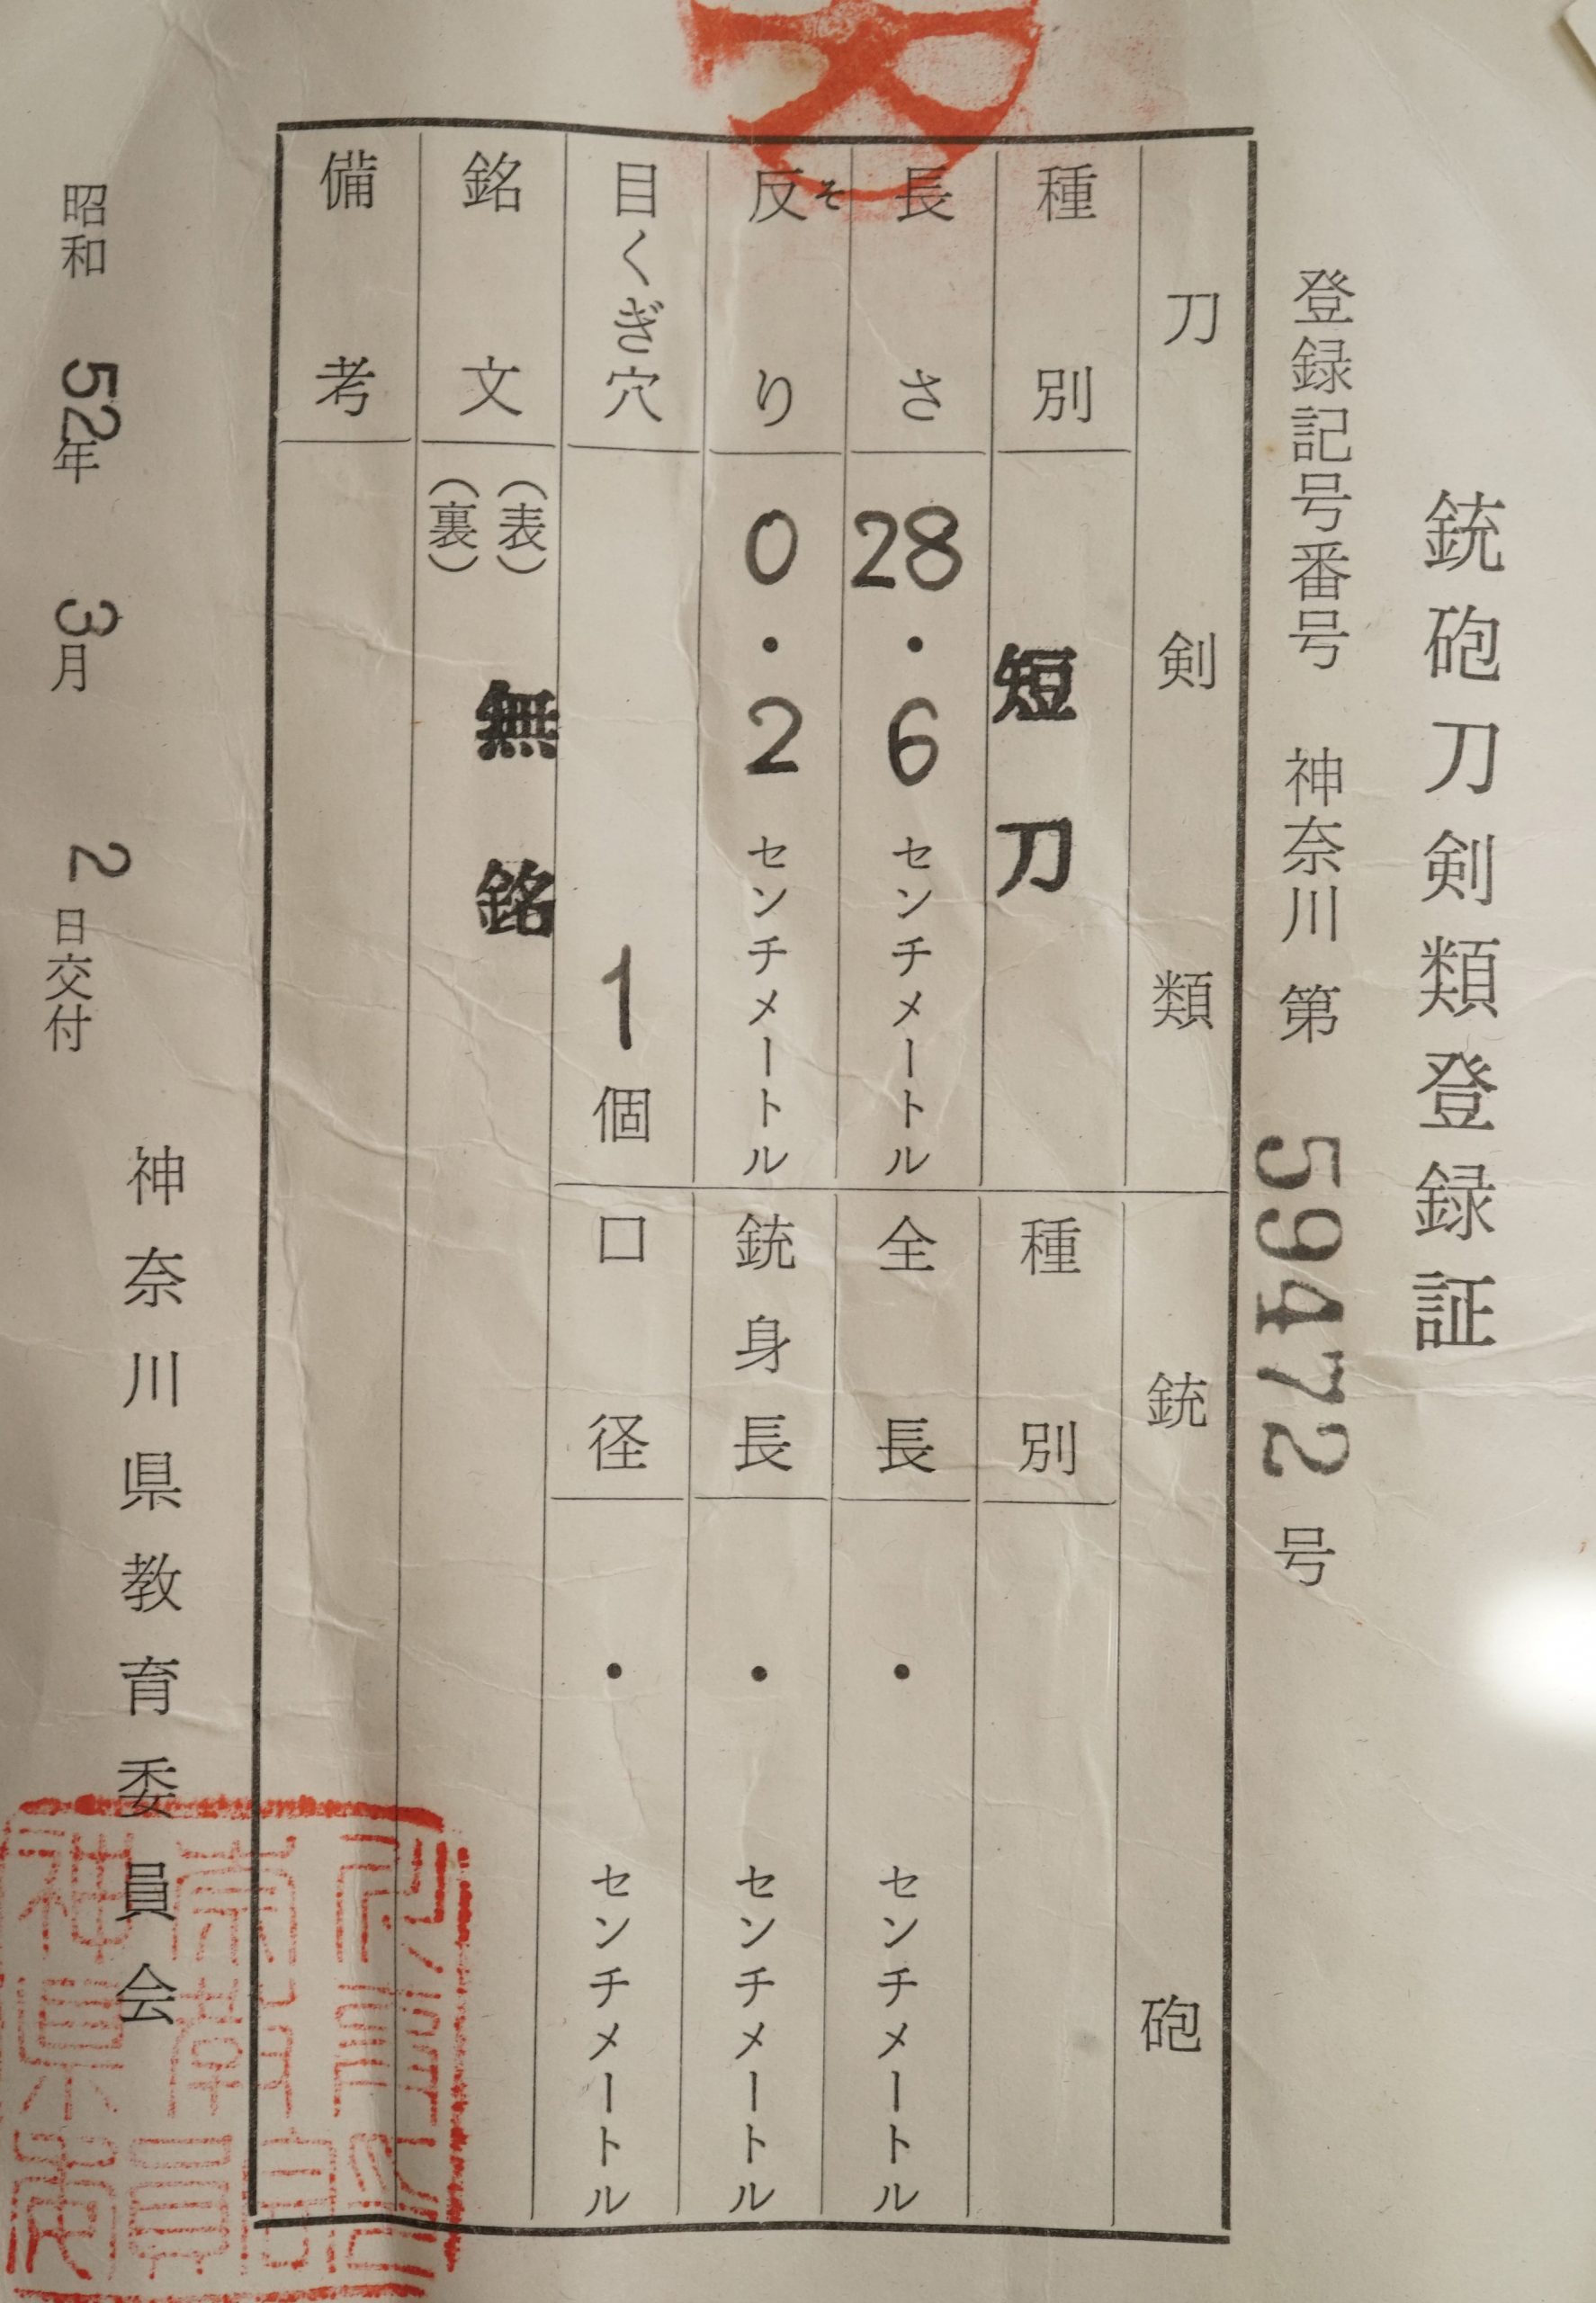 銃砲刀剣類登録証
登録記号番号 神奈川 第 59472 号
刀剣類
種別 短刀
長さ 28・6 センチメートル
反り そ 0・2 センチメートル
目くぎ穴 1 個
銘文 (表) 無銘
(裏)
備考
銃砲
種別
全長 ・ センチメートル
銃身長 ・ センチメートル
口径 ・ センチメートル
昭和 52年 3月 2日交付
神奈川県教育委員会